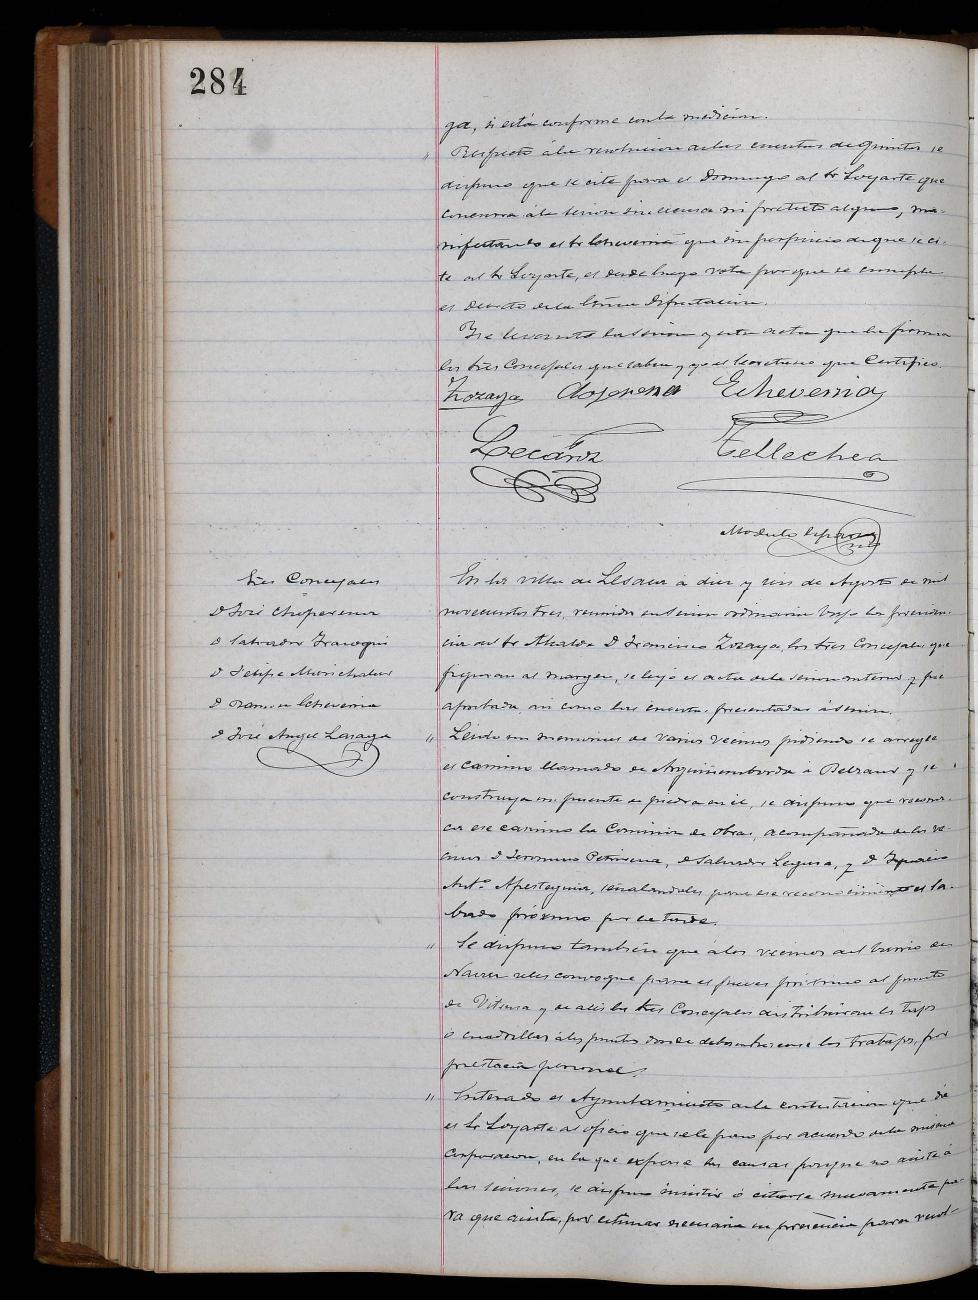 284
ga, si está conforme con la medicion.
" Respecto á la resolucion de las cuentas de quintas se
dispuso que se cite para el Domingo al Sr Loyarte que
concurra á la sesion sin escusa ni pretesto alguno, ma-
nifestando el Sr Echeverria que sin perjuicio de que se ci-
te al Sr Loyarte, el desde luego vota por que se cumpla
el decreto de la Excma Diputacion.
Se levantó la sesion y esta acta que la firman
los Sres Concejales que saben y yo el Secretario que Certifico.
Zozaya Choperena Echeverria
Lecároz Tellechea
Modesto
Sres Concejales
D José Choperena
D Salvador Iraoqui
D Felipe Marichalar
D Ramon Echeverria
D José Angel Lasaga
En la villa de Lesaca á diez y seis de Agosto de mil
novecientos tres, reunidos en sesion ordinaria bajo la presiden-
cia del Sr Alcalde D Francisco Zozaya, los Sres Concejales que
figuran al margen, se leyó el acta de la sesion anterior y fue
aprobada, asi como las cuentas presentadas á sesion.
" Leido un memorial de varios vecinos pidiendo se arregle
el camino llamado de á y se
construya un puente de piedra en él, se dispuso que recono-
ca ese camino la Comision de obras, acompañada de los ve-
cinos D Jeronimo, D Salvador Leguia, y D Ignacio
Ant.º Apesteguia, señalandoles para ese reconocimiento el Sa-
bado próximo por la tarde.
" Se dispuso tambien que á los vecinos del barrio de
Navaz se les convoque para el jueves próximo al punto
de y de alli los Sres Concejales distribuiran los
ó cuadrillas á los puntos donde deban hacerse los trabajos, por
prestacion personal.
" Enterado el Ayuntamiento de la contestacion que dá
el Sr Loyarte al oficio que se le paso por acuerdo de la misma
Corporacion, en la que expone las causas porque no asiste á
las sesiones, se dispuso insistir ó citarse nuevamente pa-
ra que asista, por estimar necesaria su presencia para resol-